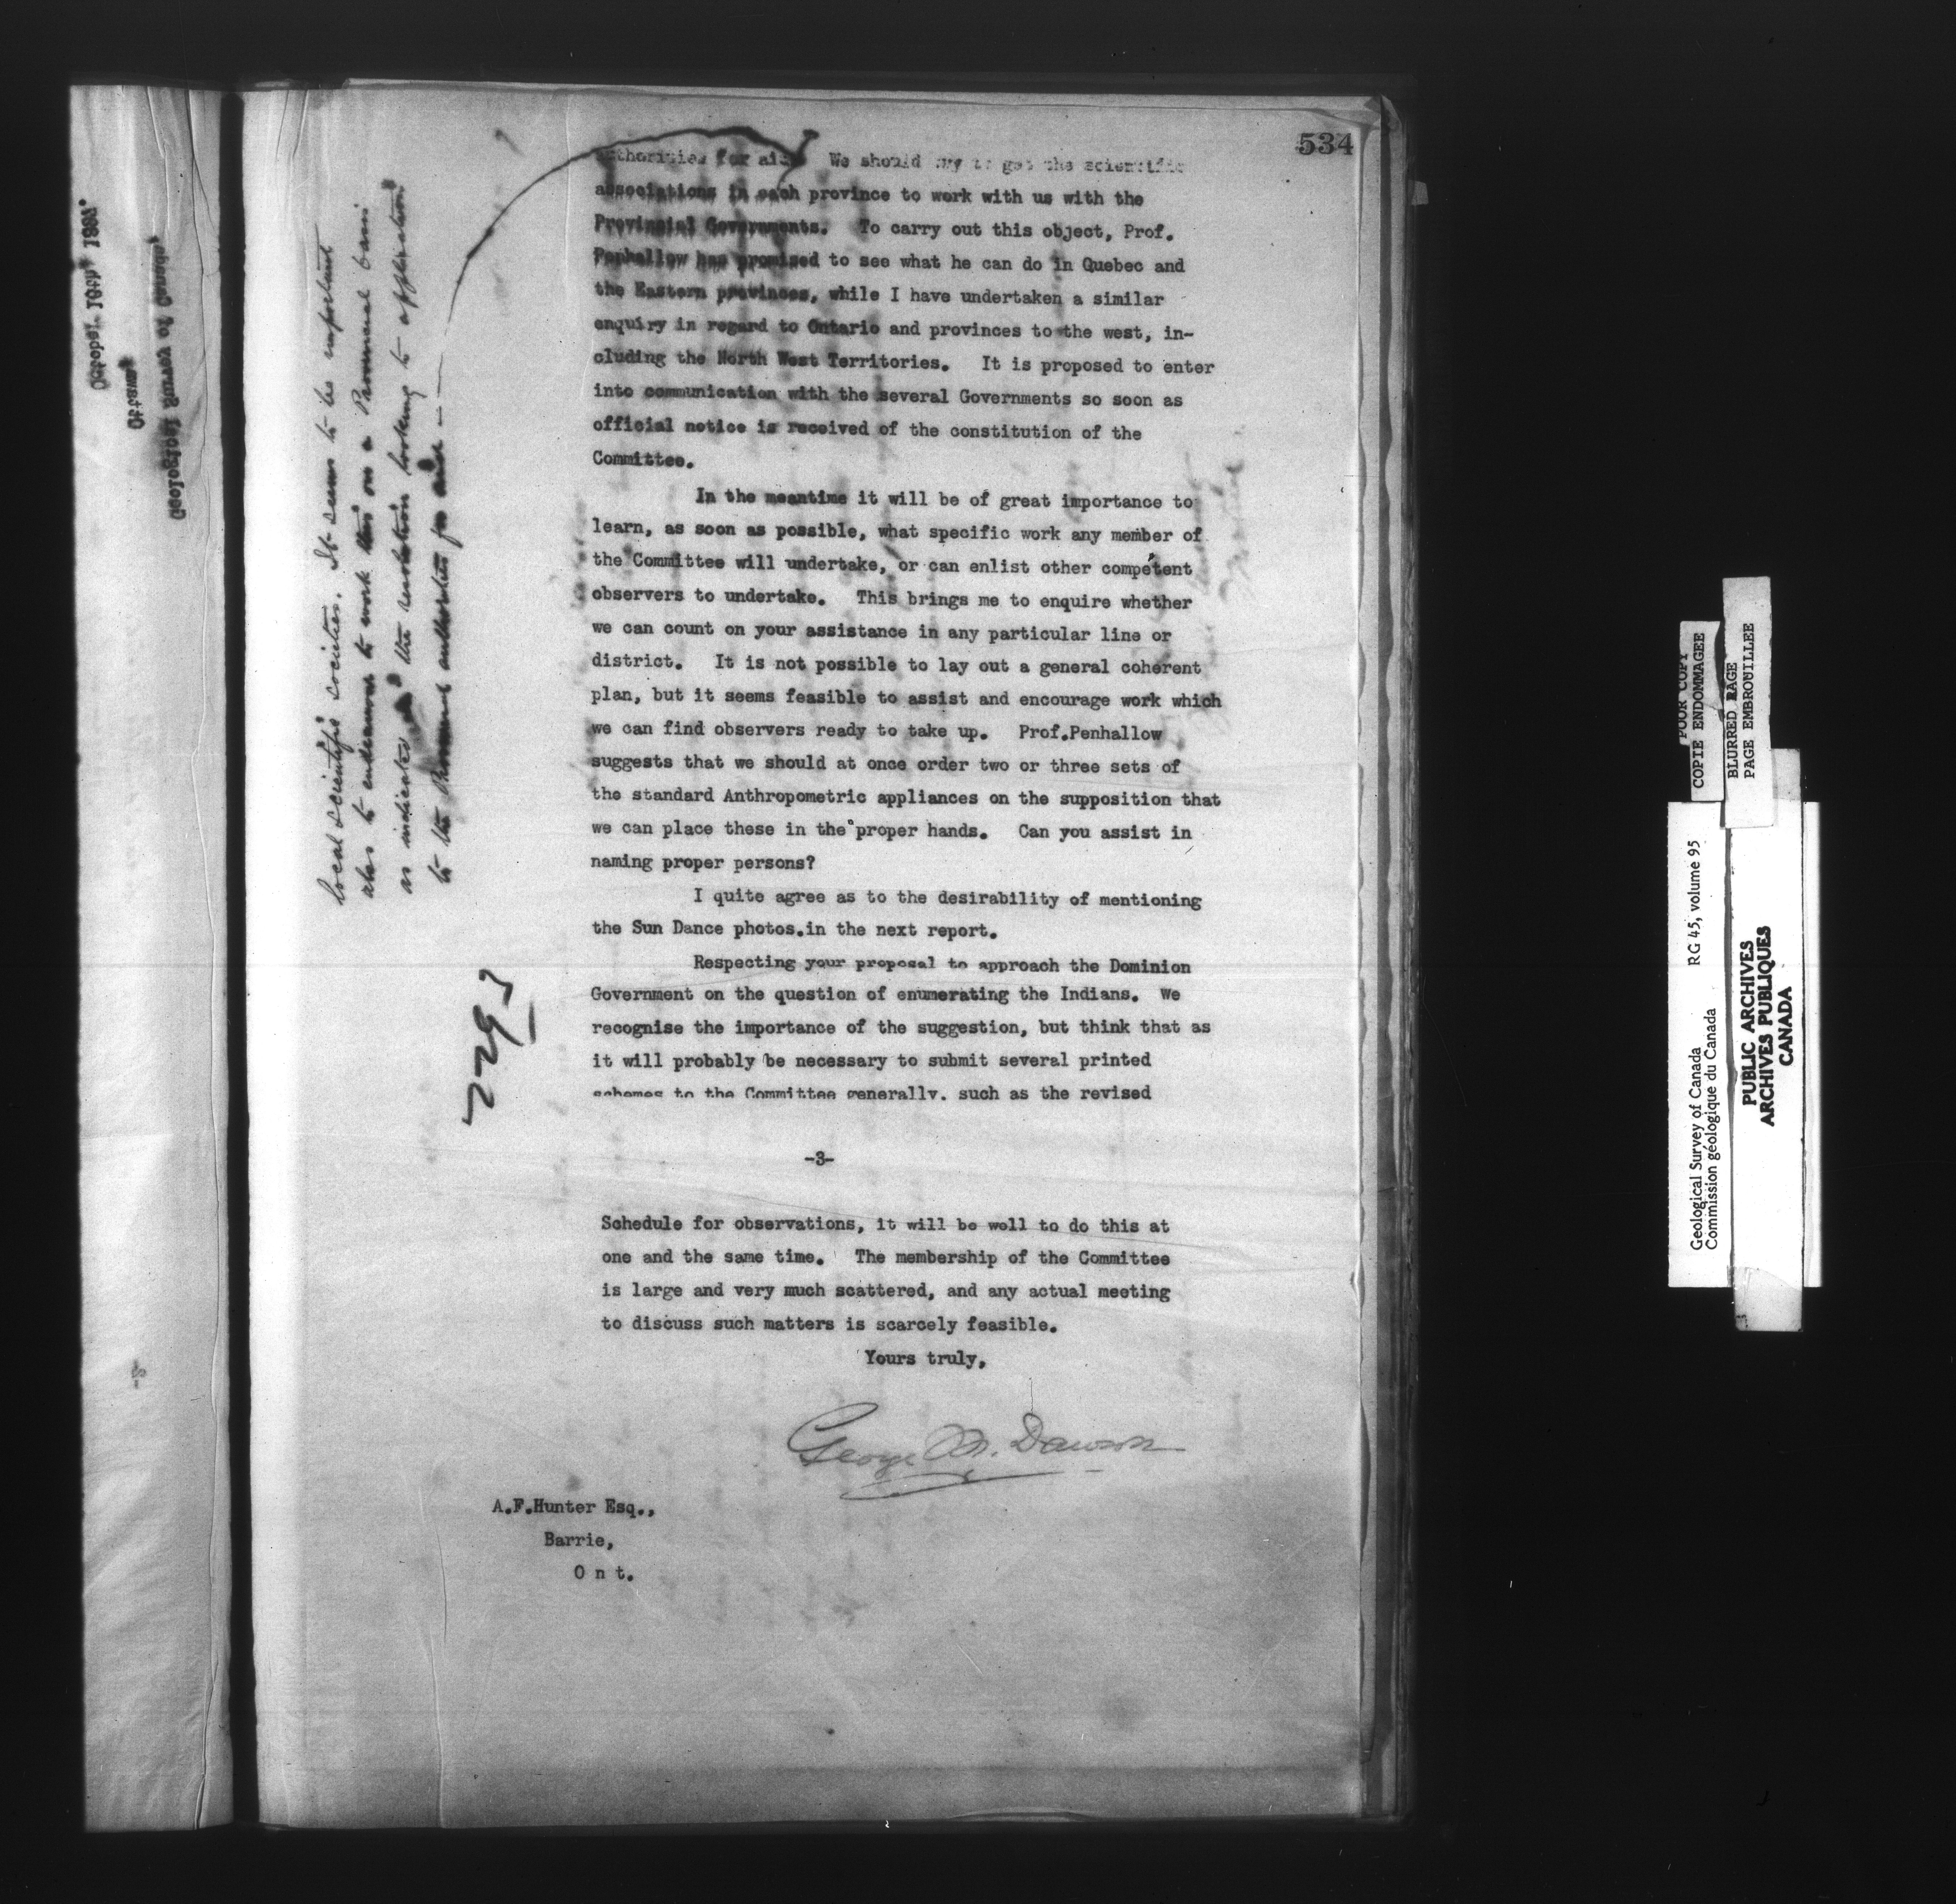 534
authorities for aid. We should try to get the scientific
associations in each province to work with us with the
Provincial Governments. To carry out this object, Prof.
Penhallow has promised to see what he can do in Quebec and
the Eastern provinces, while I have undertaken a similar
enquiry in regard to Ontario and provinces to the west, in-
cluding the North West Territories. It is proposed to enter
into communication with the several Governments so soon as
official notice is received of the constitution of the
Committee.
In the meantime it will be of great importance to
learn, as soon as possible, what specific work any member of
the Committee will undertake, or can enlist other competent
observers to undertake. This brings me to enquire whether
we can count on your assistance in any particular line or
district. It is not possible to lay out a general coherent
plan, but it seems feasible to assist and encourage work which
we can find observers ready to take up. Prof.Penhallow
suggests that we should at once order two or three sets of
the standard Anthropometric appliances on the supposition that
we can place these in the proper hands. Can you assist in
naming proper persons?
I quite agree as to the desirability of mentioning
the Sun Dance photos.in the next report.
Respecting your proposal to approach the Dominion
Government on the question of enumerating the Indians. We
recognise the importance of the suggestion, but think that as
it will probably be necessary to submit several printed
schemes to the Committee generally, such as the revised
-3-
Schedule for observations, it will be well to do this at
one and the same time. The membership of the Committee
is large and very much scattered, and any actual meeting
to discuss such matters is scarcely feasible.
Yours truly,
George M. Dawson
A.F.Hunter Esq.,
Barrie,
O n t.
local scientific societies. It seems to be important
also to endeavour to work this on a Provincial basis
as indicated the resolution looking to application
to the Provincial authorities for aid
Geological Survey of Canada,
Ottawa,
October 19th,
-2-
POOR COPY
COPIE ENDOMMAGEE
BLURRED PAGE
PAGE EMBROUILLEE
Geological Survey of Canada RG 45, volume 95
Commission géologique du Canada
PUBLIC ARCHIVES
ARCHIVES PUBLIQUES
CANADA